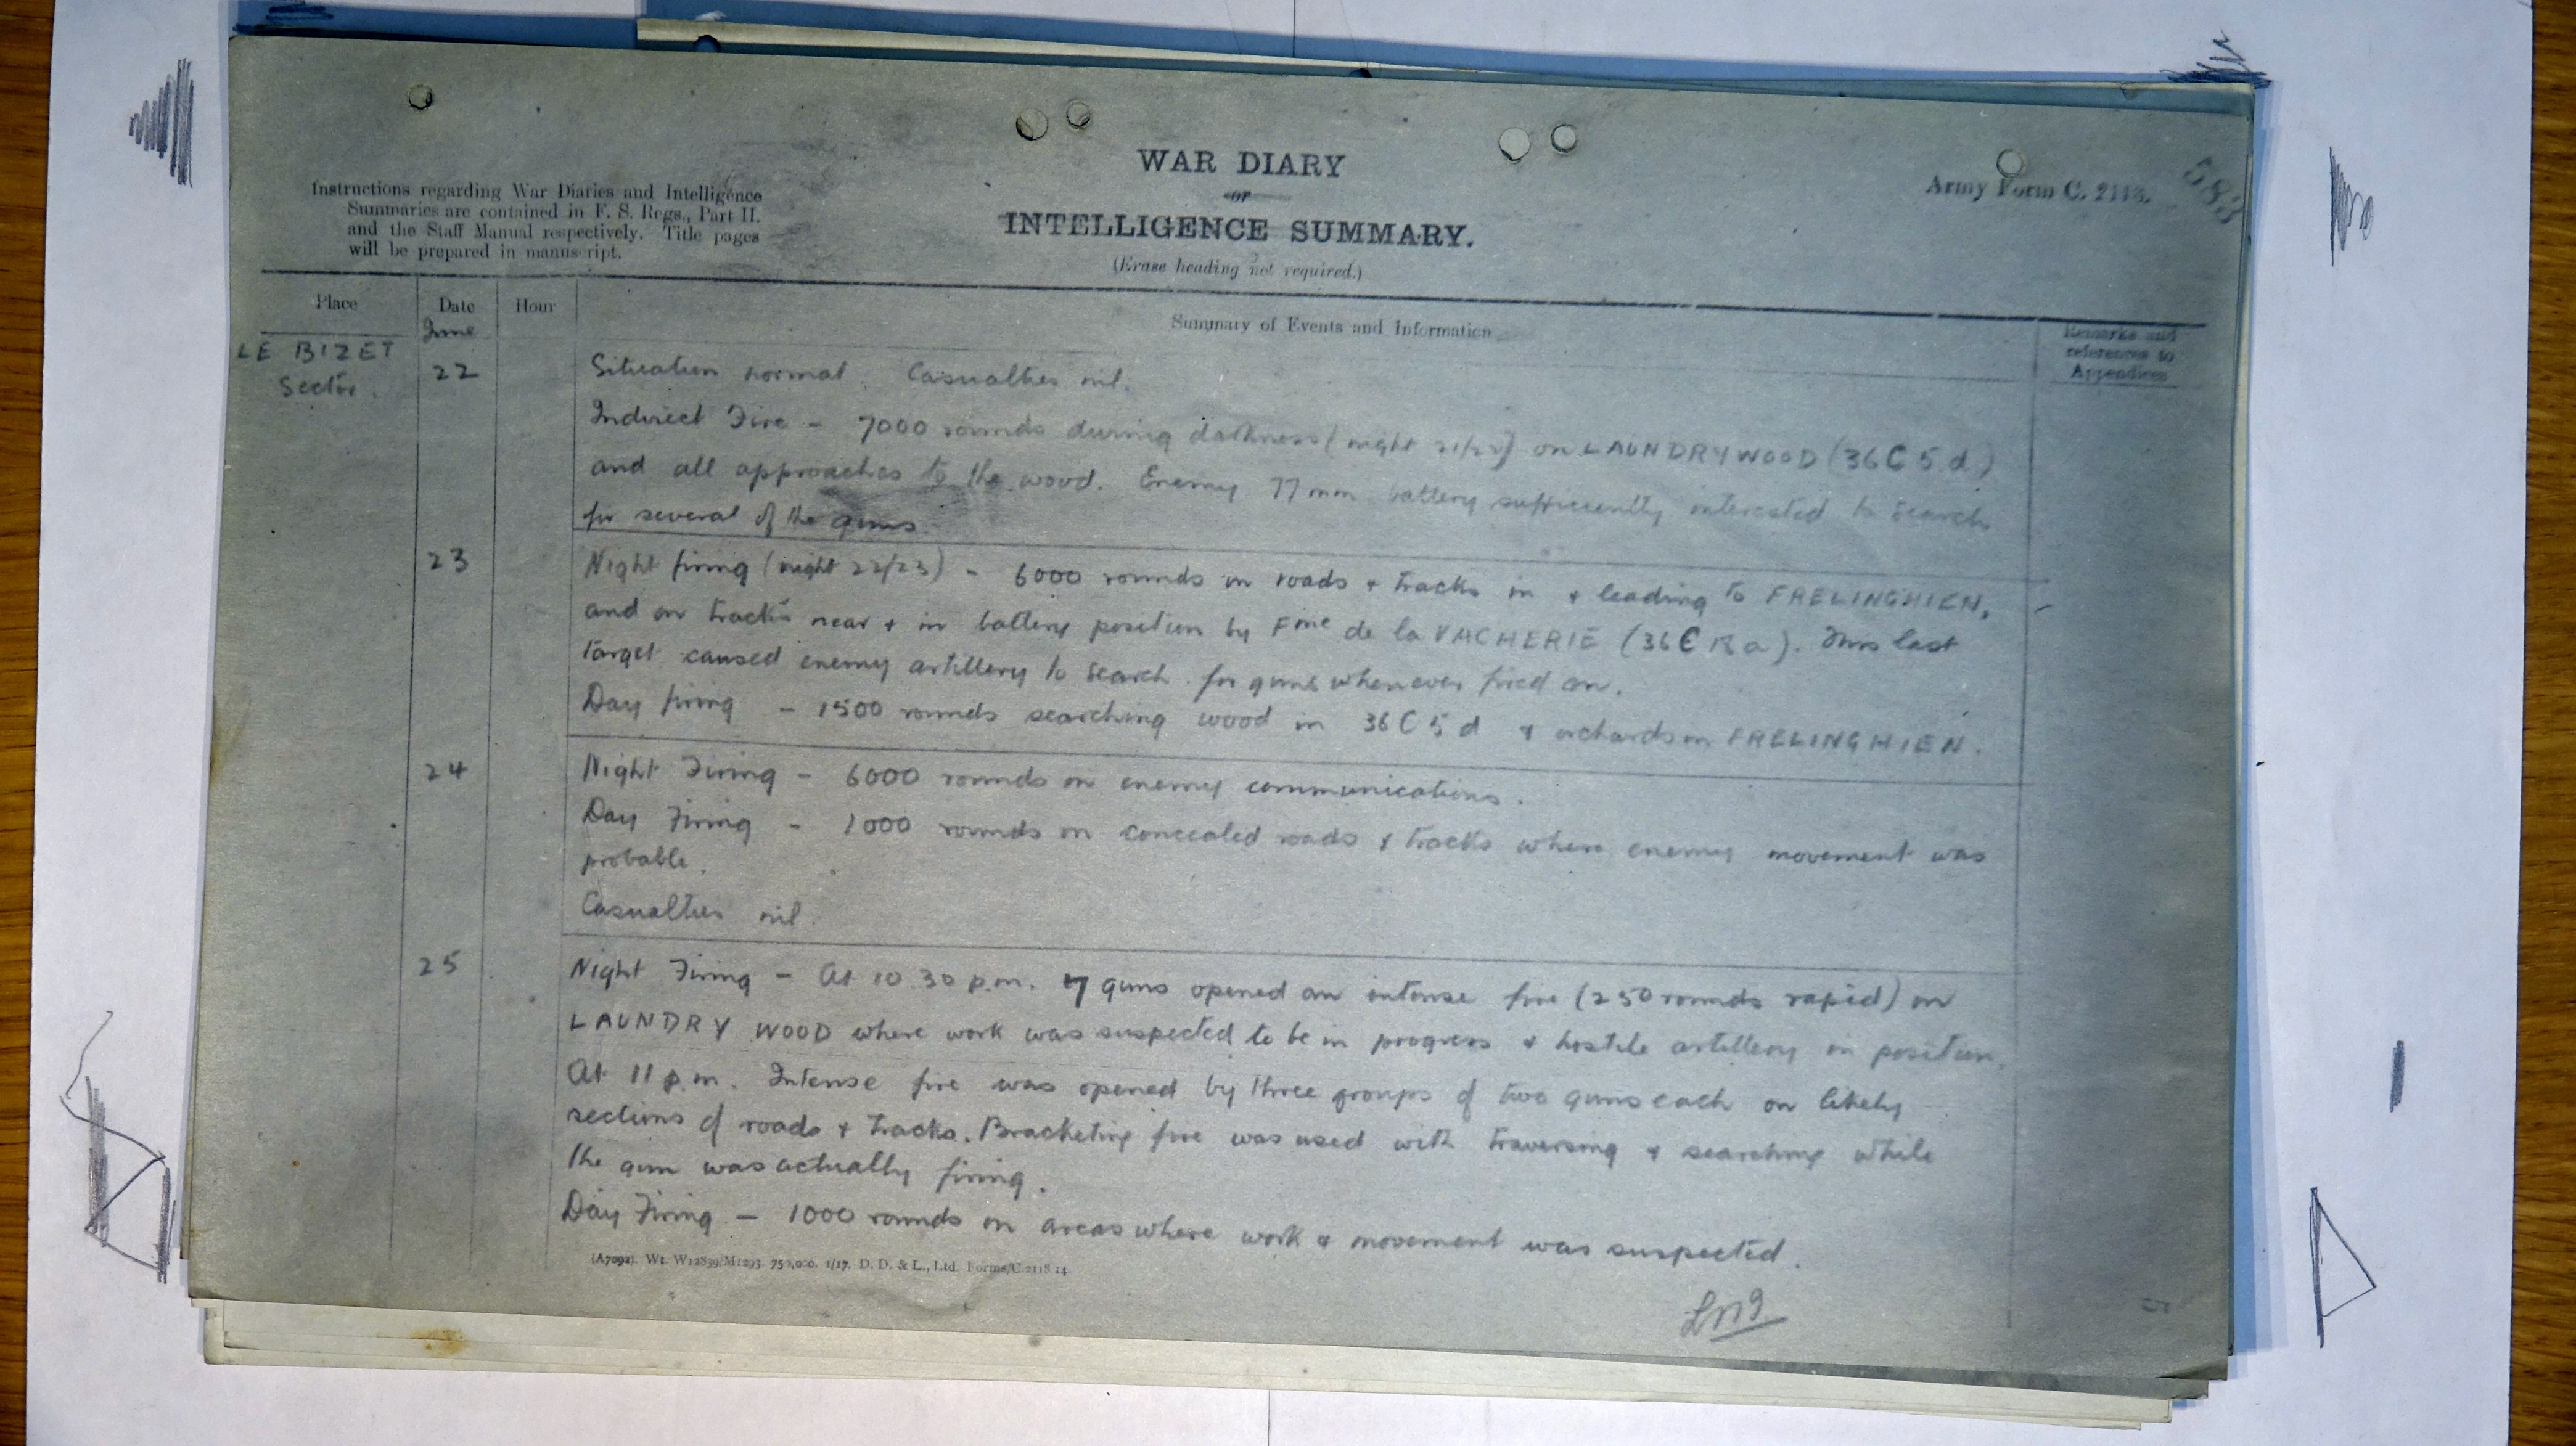 WAR DIARY
or
INTELLIGENCE SUMMARY.
(Erase heading not required.)
Instructions regarding War Diaries and Intelligence
Summaries are contained in F. S. Regs., Part II.
and the Staff Manual respectively. Title pages
will be prepared in manuscript.
Army Form C. 2118.
583
Place
Date
Hour
Summary of Events and Information
Remarks and
references to
Appendices
June
LE BIZET
Sector.
22
Situation normal. Casualties nil.
Indirect Fire - 7000 rounds during darkness (night 21/22) on LAUNDRY WOOD (36 C 5 d)
and all approaches to the wood. Enemy 77 mm battery sufficiently interested to search
for several of the guns.
23
Night firing (night 22/23) - 6000 rounds on roads & tracks in & leading to FRELINGHIEN,
and on tracks near & in battery position by Fme de la VACHERIE (36 C a). This last
target caused enemy artillery to search for guns whenever fired on.
Day firing - 1500 rounds searching wood in 36 C 5 d & orchards in FRELINGHIEN.
24
Night Firing - 6000 rounds on enemy communications.
Day Firing - 1000 rounds on concealed roads & tracks where enemy movement was
probable.
Casualties nil.
25
Night Firing - At 10.30 p.m. 7 guns opened an intense fire (250 rounds rapid) on
LAUNDRY WOOD where work was suspected to be in progress & hostile artillery in position.
At 11 p.m. Intense fire was opened by three groups of two guns each on likely
sections of roads & tracks. Bracketing fire was used with traversing & searching while
the gun was actually firing.
Day Firing - 1000 rounds on areas where work & movement was suspected.
(A7092). Wt. W12839/M1293. 750,000. 1/17. D. D. & L., Ltd. Forms/C.2118/14.